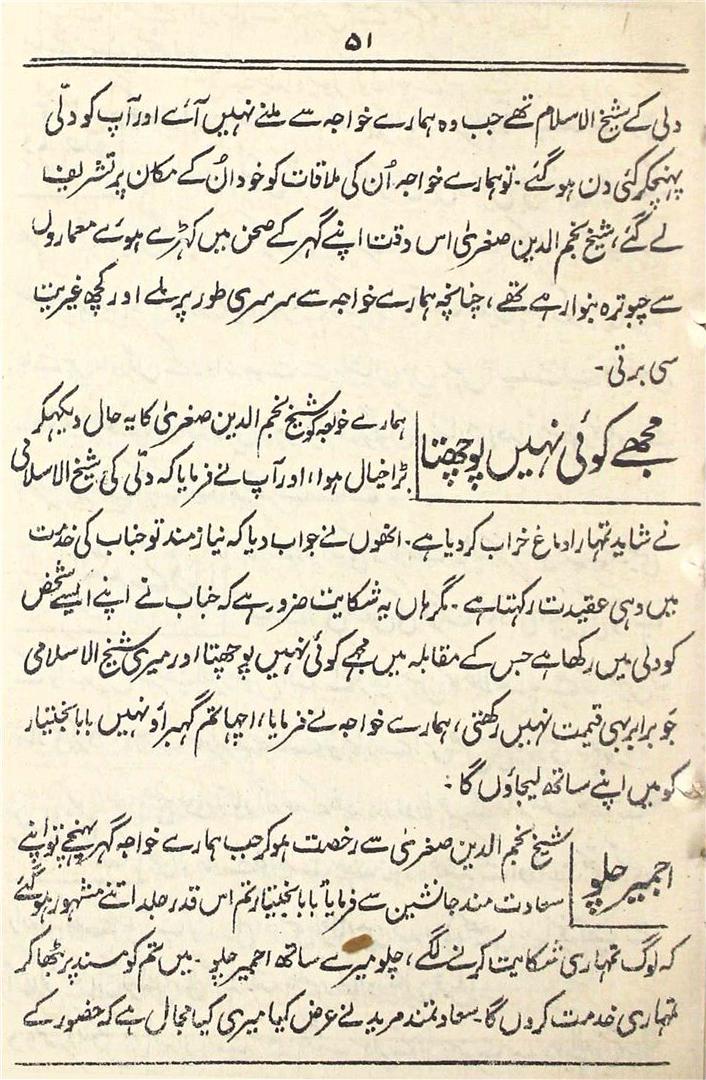 ۵۱
دلی کے شیخ الاسلام تھے جب وہ ہمارے خواجہ سے ملنے نہیں آئے اور آپ کو دلّی
پہنچکر کئی دن ہو گئے ۔ تو ہمارے خواجہ اُن کی ملاقات کو خود اُن کے مکان پر تشریف
لے گئے ، شیخ نجم الدین صغریٰ اس وقت اپنے گہر کے صحن میں کہڑے ہوئے معماروں
سے چبوترہ بنوا رہے تھے ، چنانچہ ہمارے خواجہ سے سرسری طور پر ملے اور کچھ غیریت
سی برتی ۔
مجھے کوئی نہیں پوچھتا
ہمارے خواجہ کو شیخ نجم الدین صغریٰ کا یہ حال دیکہکر
بڑا خیال ہوا ، اور آپ نے فرمایا کہ دلّی کی شیخ الاسلامی
نے شاید تمہارا دماغ خراب کر دیا ہے ۔ انھوں نے جواب دیا کہ نیازمند تو جناب کی خدمت
میں وہی عقیدت رکہتا ہے ۔ مگر ہاں یہ شکایت ضرور ہے کہ جناب نے اپنے ایسے شخص
کو دلی میں رکھا ہے جس کے مقابلہ میں مجھے کوئی نہیں پوچھتا اور میری شیخ الاسلامی
جَو برابر بہی قیمت نہیں رکھتی ، ہمارے خواجہ نے فرمایا ، اچہا تم گہبراؤ نہیں بابا بختیار
کو میں اپنے ساتھ لیجاؤں گا ۔
اجمیر چلو
شیخ نجم الدین صغریٰ سے رخصت ہو کر جب ہمارے خواجہ گہر پہنچے تو اپنے
سعادت مند جانشین سے فرمایا بابا بختیار تم اس قدر جلد اتنے مشہور ہو گئے
کہ لوگ تمہاری شکایت کرنے لگے ، چلو میرے ساتھ اجمیر چلو ۔ میں تم کو مسند پر بٹھا کر
تمہاری خدمت کروں گا سعادتمند مرید نے عرض کیا میری کیا مجال ہے کہ حضور کے